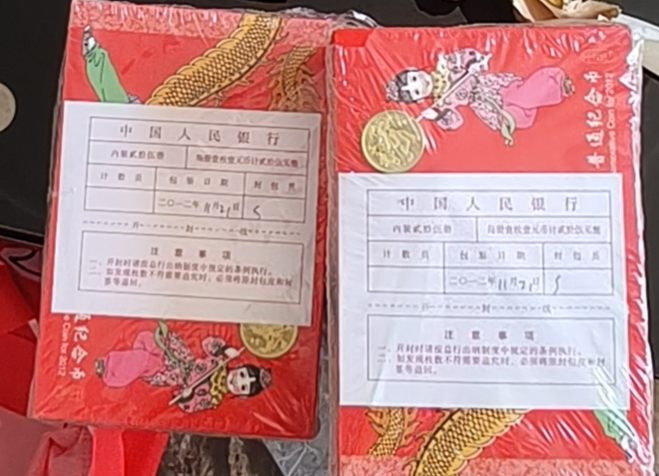 中国人民银行
内装贰拾伍册 每册壹枚壹元币计贰拾伍元整
计数员 包装日期 封包员
二〇一二年11月21日
开 封 线
注意事项
一、开封时请按总行出纳制度中规定的条例执行。
二、如发现枚数不符需要追究时，必须将原封包皮和封
签等追回。
普通纪念币
Coin for 2012
普通纪念币
Coin for 2012
中国人民银行
内装贰拾伍册 每册壹枚壹元币计贰拾伍元整
计数员 包装日期 封包员
二〇一二年11月21日
开 封 线
注意事项
一、开封时请按总行出纳制度中规定的条例执行。
二、如发现枚数不符需要追究时，必须将原封包皮和封
签等追回。